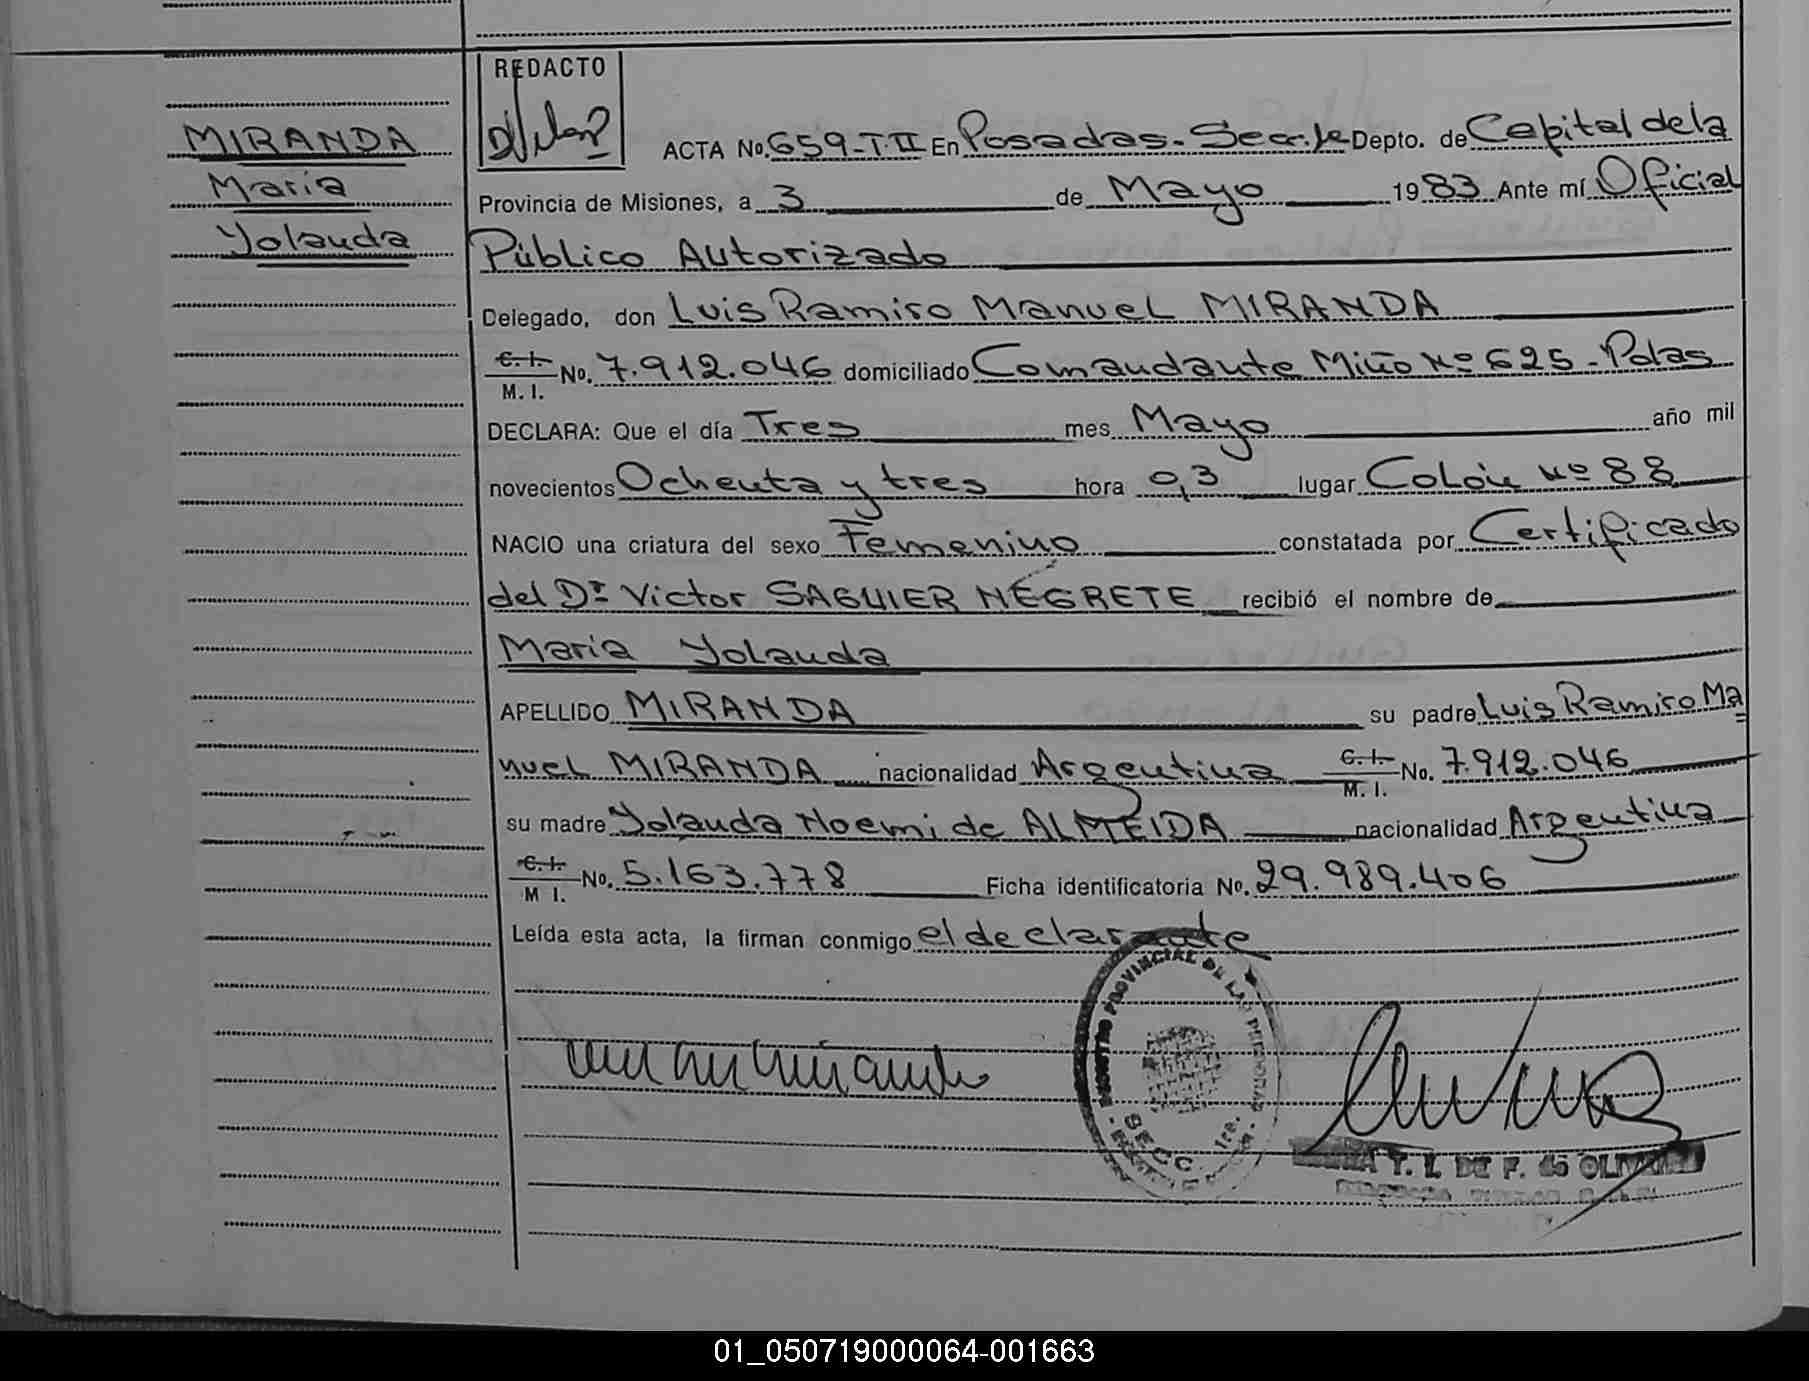 REDACTO
MIRANDA
Maria
Yolanda
ACTA No. 659-T.II En Posadas- Depto. de Capital de la
Provincia de Misiones, a 3 de Mayo 1983 Ante mí Oficial
Público Autorizado
Delegado, don Luis Ramiro Manuel MIRANDA
C. I.
M. I. No. 7.912.046 domiciliado Comandante Miño Nº 625 - Pdas
DECLARA: Que el día Tres mes Mayo año mil
novecientos Ochenta y tres hora 0,3 lugar Colón Nº 88
NACIO una criatura del sexo Femenino constatada por Certificado
del Dr Victor SAGUIER NEGRETE recibió el nombre de
Maria Yolanda
APELLIDO MIRANDA su padre Luis Ramiro Ma
nuel MIRANDA nacionalidad Argentina C. I.
M. I. No. 7.912.046
su madre Yolanda Noemi de ALMEIDA nacionalidad Argentina
C. I.
M I. No. 5.163.778 Ficha identificatoria No. 29.989.406
Leída esta acta, la firman conmigo el declarante
REGISTRO PROVINCIAL DE LAS PERSONAS
SECC. 1ra.
T. L. DE F. de OLIVERA
01_050719000064-001663